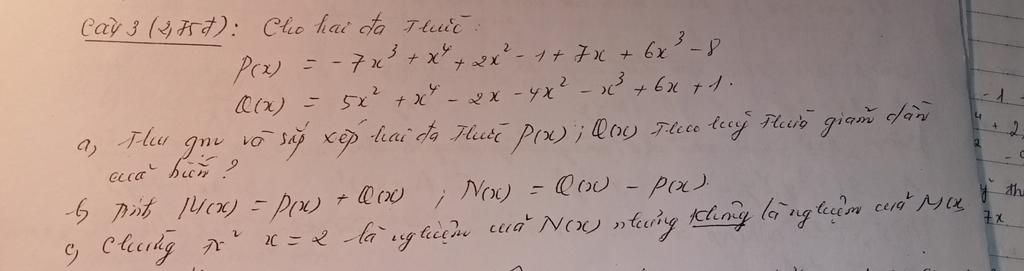 Câu 3 (2,75đ): Cho hai đa thức:
P(x) = -7x³ + x⁴ + 2x² - 1 + 7x + 6x³ - 8
Q(x) = 5x² + x⁴ - 2x - 4x² - x³ + 6x + 1.
a, Thu gọn và sắp xếp hai đa thức P(x); Q(x) theo luỹ thừa giảm dần
của biến?
b, Tính M(x) = P(x) + Q(x) ; N(x) = Q(x) - P(x).
c, Chứng tỏ x = 2 là nghiệm của N(x) nhưng không là nghiệm của M(x)